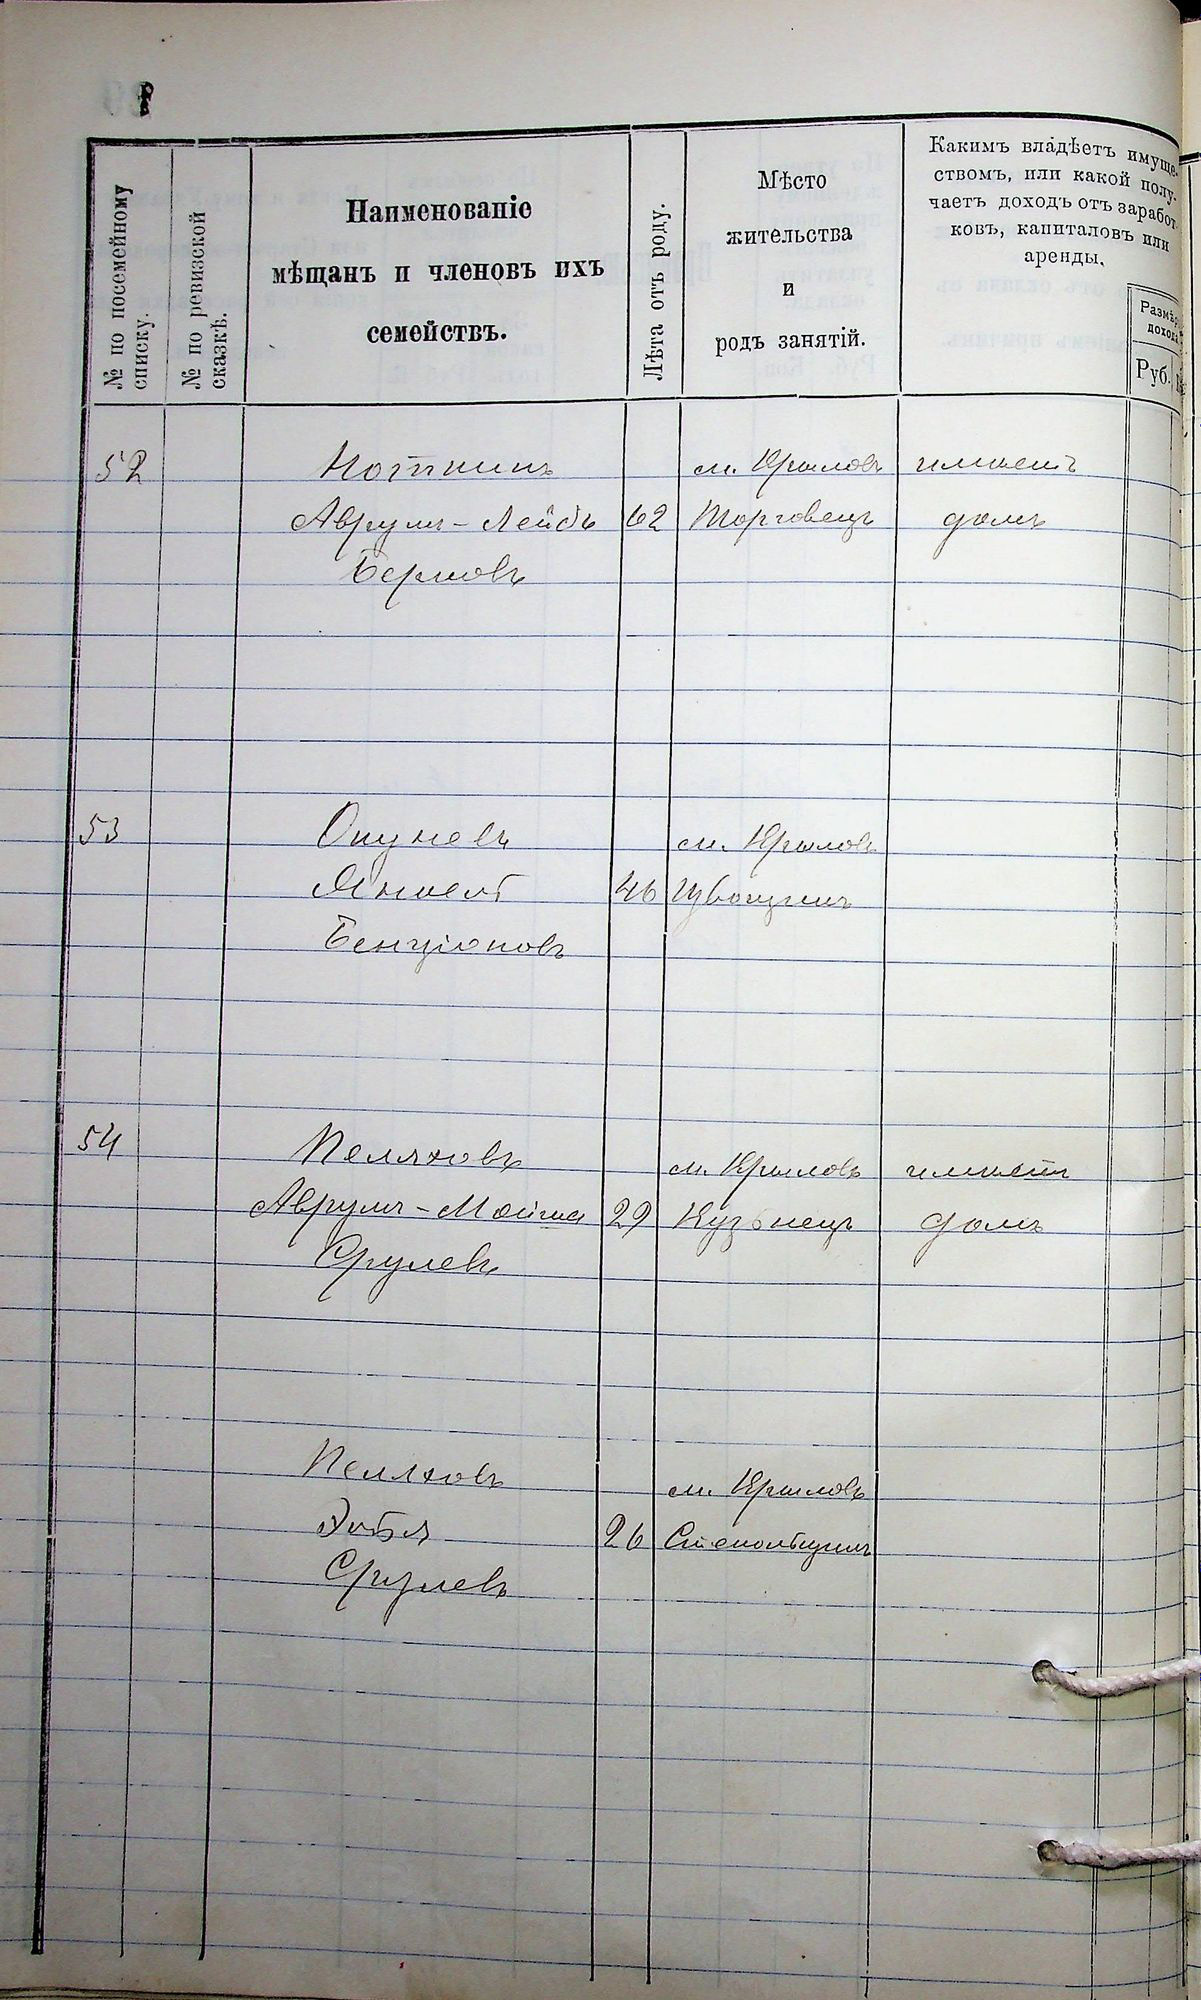 № по посемейному
списку.
№ по ревизской
сказкѣ.
Наименованіе
мѣщанъ и членовъ ихъ
семействъ.
Лѣта отъ роду.
Мѣсто
жительства
и
родъ занятій.
Какимъ владѣетъ имуще-
ствомъ, или какой полу-
чаетъ доходъ отъ заработ-
ковъ, капиталовъ или
аренды.
Размѣр
дохода
Руб.
52 м. Крыловъ имѣетъ
Аврумъ-Лейбъ 62 Торговецъ домъ
Берковъ
53 Окуневъ м. Крыловъ
46 Извощикъ
Бенціоновъ
54 Пеляховъ м. Крыловъ имѣетъ
Аврумъ-Мойша 29 Кузьнецъ домъ
Срулевъ
Пеляховъ м. Крыловъ
26 Стекольщикъ
Срулевъ